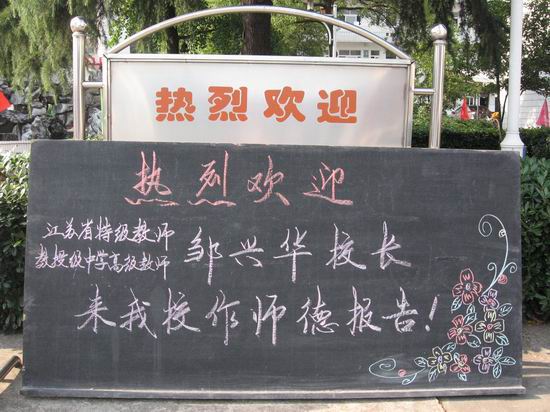 热烈欢迎
热烈欢迎
江苏省特级教师
教授级中学高级教师
邹兴华校长
来我校作师德报告!